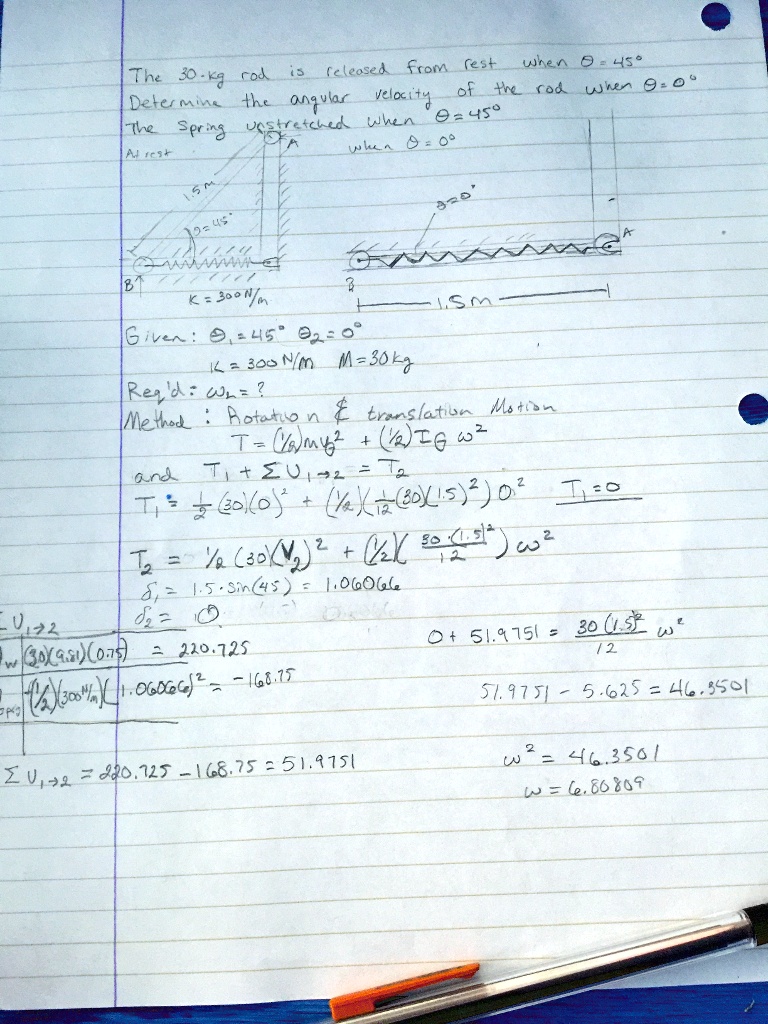 The 30-kg rod is released from rest when θ = 45°
Determine the angular velocity of the rod when θ = 0°
The Spring unstretched when θ = 45°
At rest
A
when θ = 0°
1.5m
θ = 45°
θ = 0°
A
B
K = 300 N/m
B
1.5m
Given: θ₁ = 45° θ₂ = 0°
K = 300 N/m M = 30 kg
Req'd: ω₂ = ?
Method: Rotation & translation Motion
T = (1/2)mv_G² + (1/2)I_G ω²
and T₁ + ΣU₁→₂ = T₂
T₁ = 1/2 (30)(0)² + (1/2)(1/12 (30)(1.5)²) 0² T₁ = 0
T₂ = 1/2 (30)(V₂)² + (1/2)(30·(1.5)²/12) ω²
δ₁ = 1.5·Sin(45) = 1.06066
δ₂ = 0
ΣU₁→₂
w (30)(9.81)(0.75) = 220.725
(1/2)(300 N/m)(1.06066)² = -168.75
ΣU₁→₂ = 220.725 - 168.75 = 51.9751
0 + 51.9751 = 30(1.5)²/12 ω²
51.9751 - 5.625 = 46.3501
ω² = 46.3501
ω = 6.80809